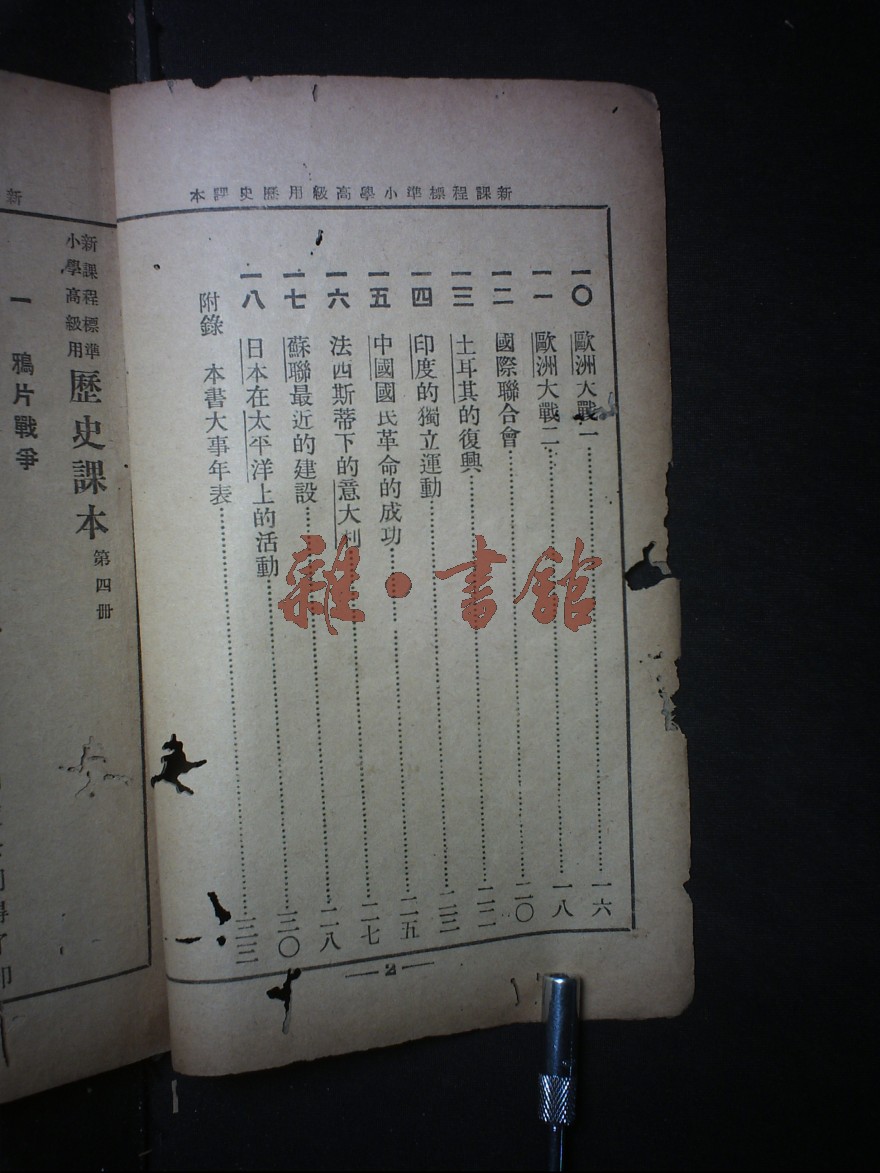 新課程標準小學高級用歷史課本
一〇 歐洲大戰一……一六
一一 歐洲大戰二……一八
一二 國際聯合會……二〇
一三 土耳其的復興……二二
一四 印度的獨立運動……二三
一五 中國國民革命的成功……二五
一六 法西斯蒂下的意大利……二七
一七 蘇聯最近的建設……二八
一八 日本在太平洋上的活動……三〇
附錄 本書大事年表……三三
2
雜·書館
新
新課程標準
小學高級用
歷史課本 第四冊
一 鴉片戰爭